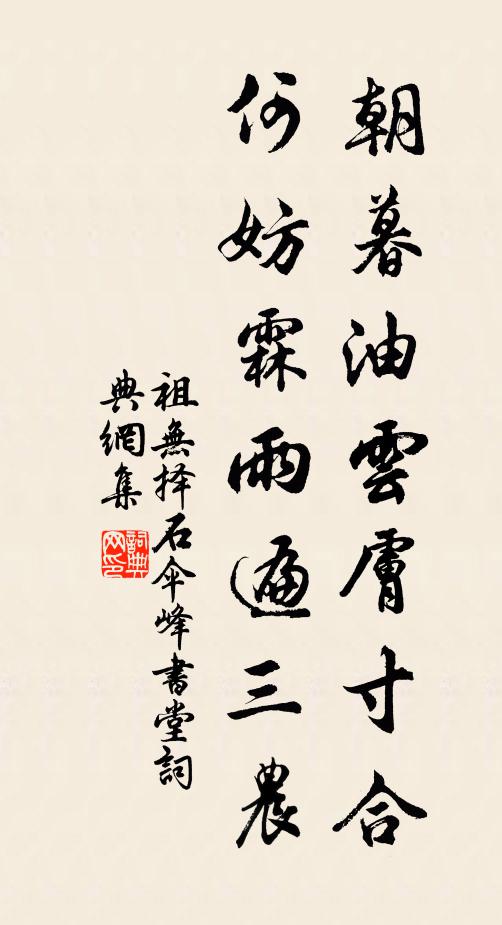 朝暮油雲膚寸合
何妨霖雨遍三農
祖無择石伞峰書堂詞
典網集
詞典
网印